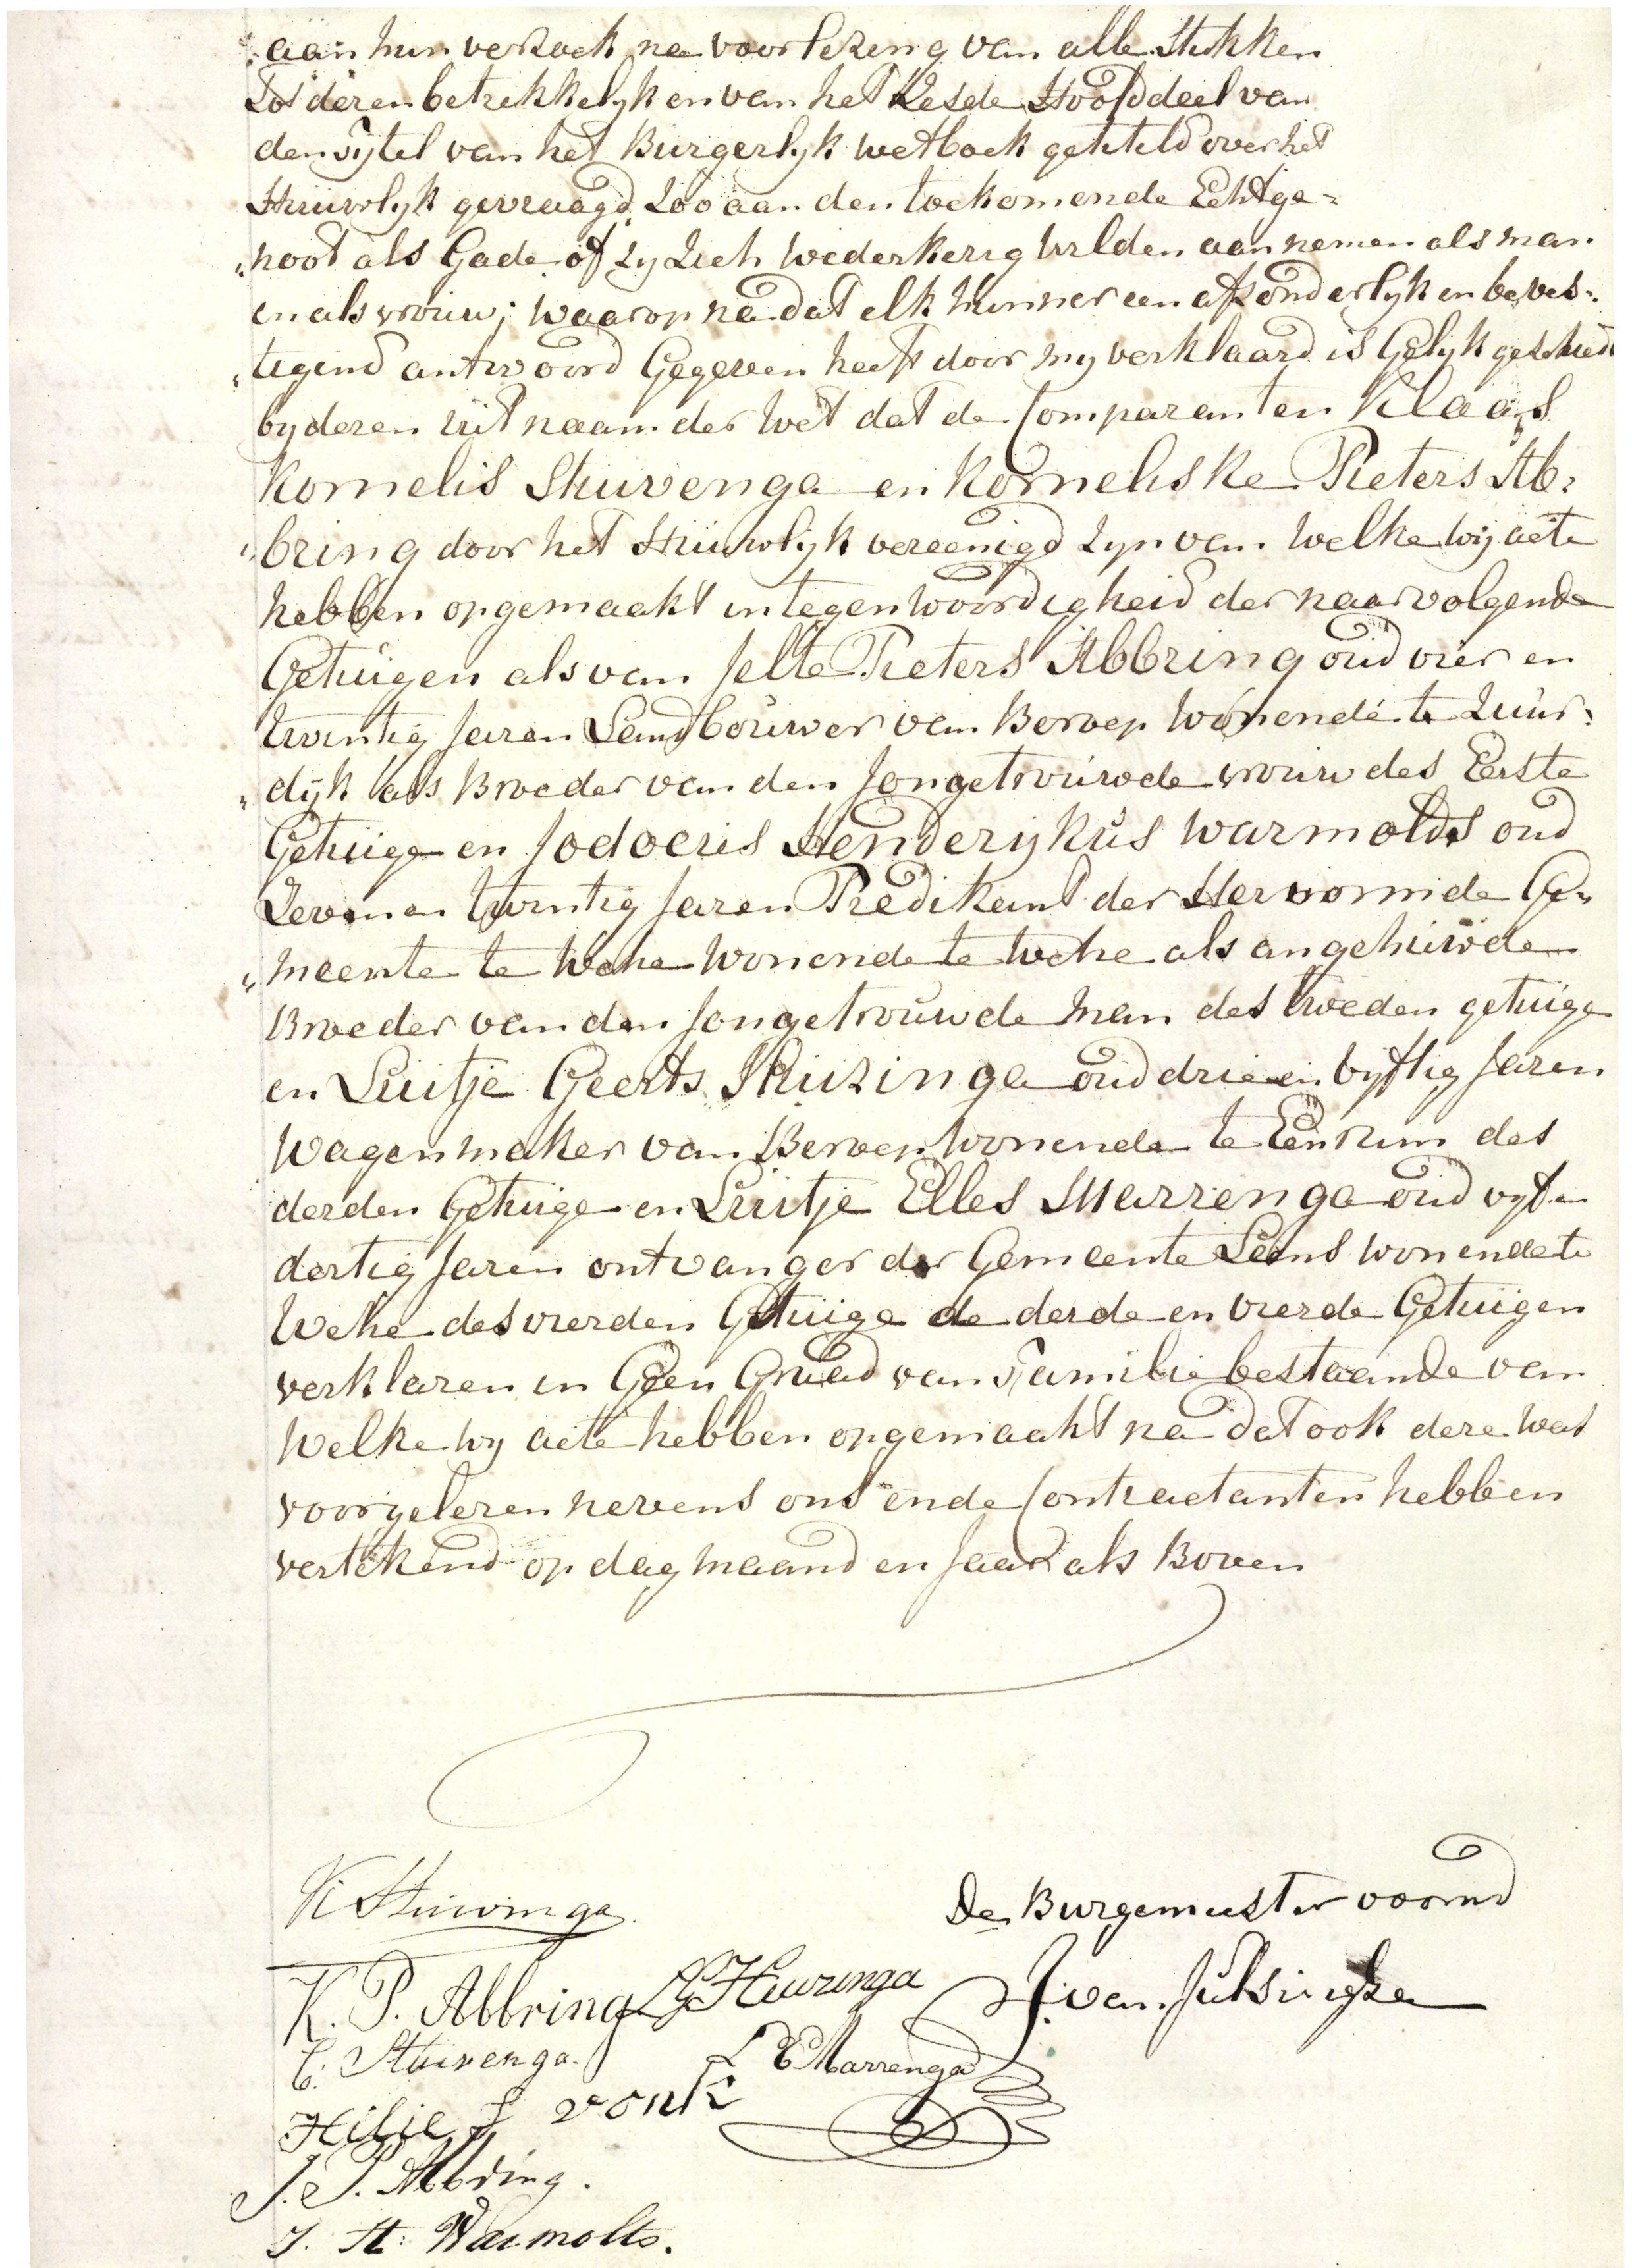 aan hun verzoek na voorlezing van alle Stukken
Tot dezen betrekkelyk en van het Zesde Hoofddeel van
den Tytel van het Burgerlyk wetboek getiteld over het
Huuwlyk gevraagd Zoo aan den toekomende Echtge=
"noot als Gade of Zy Zich Wederkerig Wilden aannemen als man
en als vrouw; Waarop na dat elk hunner een afzonderlyk en beves=
"tigend antwoord Gegeven heeft door my verklaard is Gelyk geschied
by dezen uit naam der Wet dat de Comparanten Klaas
Kornelis Huivenga en Korneliske Pieters Ab=
"bring door het Huuwlyk vereenigd Zyn van Welke Wij acte
hebben opgemaakt in tegenwoordigheid der naarvolgende
Getuigen als van Jelte Pieters Abbring oud vier en
twintig Jaren Landbouwer van Beroep Wonende te Zuur=
"dijk als Broeder van den Jongetrouwde vrouw des Eerste
Getuige en Jodocus Henderykus Warmolds oud
Zeven en twintig Jaren Predikant der Hervormde Ge=
"meente te Wehe Wonende te Wehe als angehuwde
Broeder van den Jongetrouwde Man des tweden getuige
en Luitje Geerts Huizinga oud drie en vyftig Jaren
Wagenmaker van Beroep Wonende te Eenrum des
derden Getuige en Luitje Elles Marrenga oud vyf en
dertig Jaren ontvanger der Gemeente Leens Wonende te
Wehe des vierden Getuige de derde en vierde Getuigen
verklaren in Geen Graad van Familie bestaande van
Welke Wy acte hebben opgemaakt na dat ook deze Was
voorgelezen nevens ons ende Contractanten hebben
vertekend op dag maand en Jaar als Boven
K Huivinga
De Burgemeester voornd
K. P. Abbring LG Huizinga J. van Julsingha
C. Huivenga L E Marrenga
Hilje J vonk
J. P. Abbring.
J. H. Warmolts.